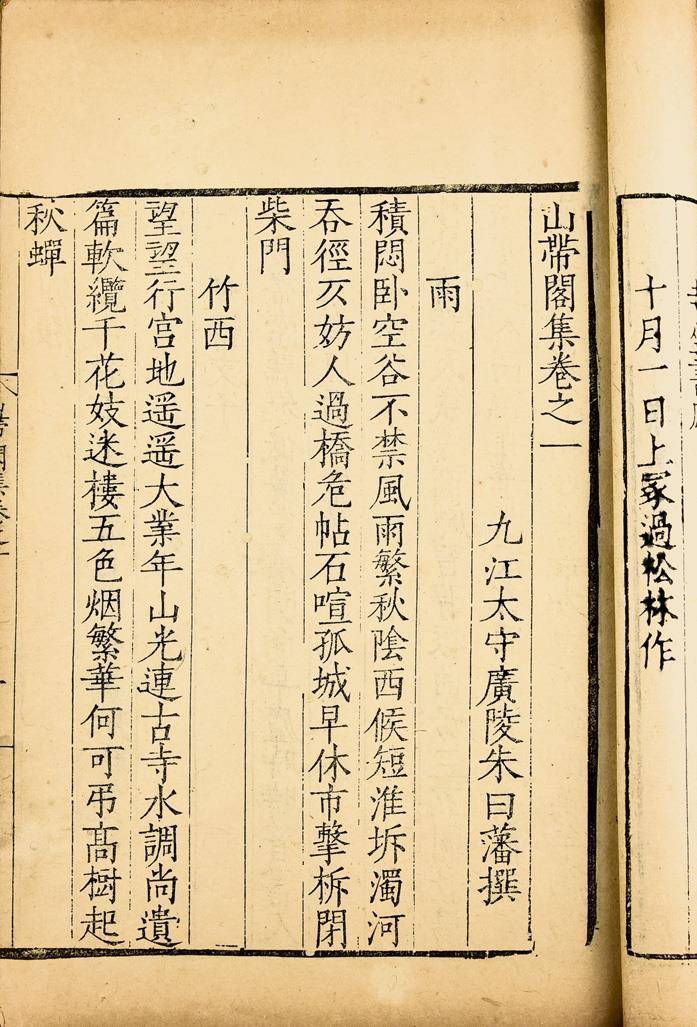 十月一日上冢過松林作
山帶閣集卷之一
九江太守廣陵朱曰藩撰
雨
積悶卧空谷不禁風雨繁秋陰西候短淮坼濁河
吞徑仄妨人過橋危帖石喧孤城早休市擊柝閉
柴門
竹西
望望行宮地遥遥大業年山光連古寺水調尚遺
篇軟纜千花妓迷樓五色烟繁華何可弔髙樹起
秋蟬